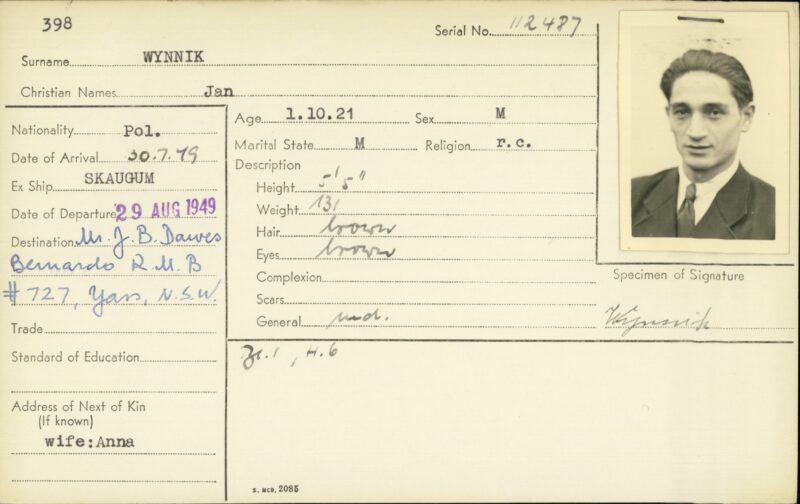 398
Serial No. 112487
Surname WYNNIK
Christian Names Jan
Nationality Pol.
Date of Arrival 30.7.49
Ex Ship SKAUGUM
Date of Departure 29 AUG 1949
Destination Mr. J. B. Dawes
Bernardo R.M.B
# 727, Yass, N.S.W.
Trade
Standard of Education
Address of Next of Kin
(If known)
wife:Anna
Age 1.10.21 Sex M
Marital State M Religion r.c.
Description
Height 5'5"
Weight 131
Hair brown
Eyes brown
Complexion
Scars
General
Specimen of Signature
Wynnik
, H.6
S. MCD. 2085